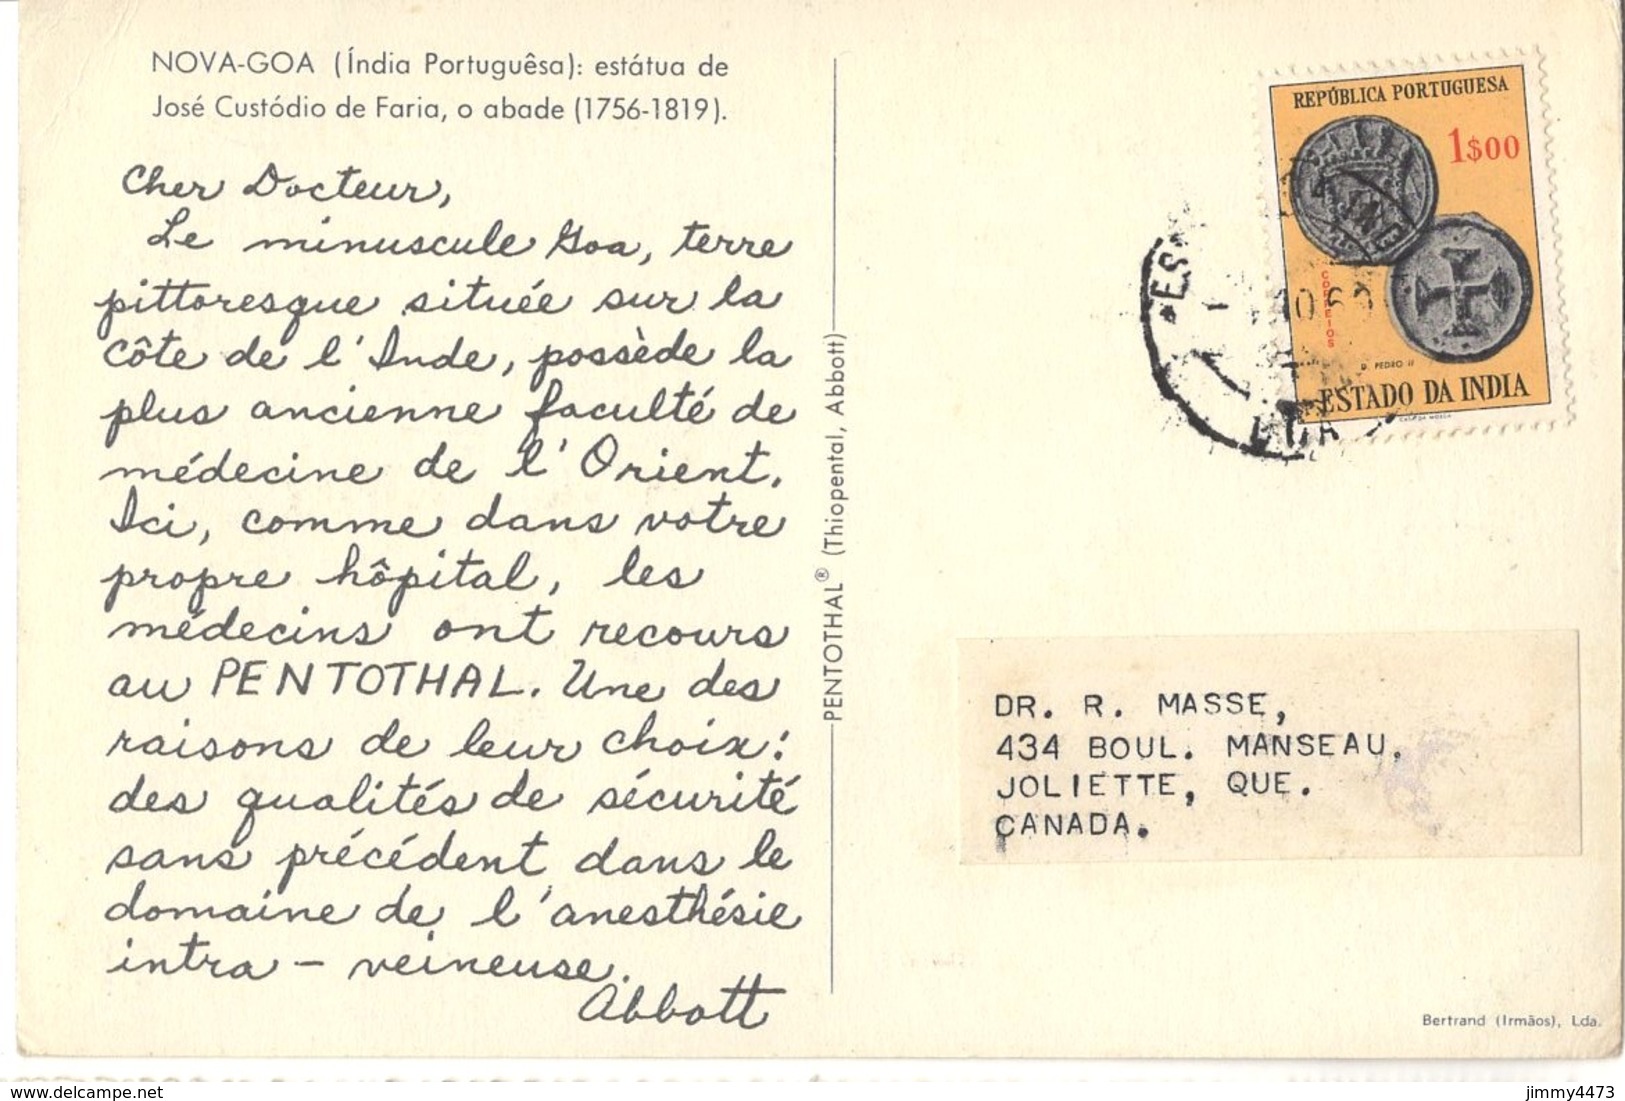 NOVA-GOA (Índia Portuguêsa): estátua de
José Custódio de Faria, o abade (1756-1819).
Cher Docteur,
Le minuscule Goa, terre
pittoresque située sur la
côte de l'Inde, possède la
plus ancienne faculté de
médecine de l'Orient.
Ici, comme dans votre
propre hôpital, les
médecins ont recours
au PENTOTHAL. Une des
raisons de leur choix:
des qualités de sécurité
sans précédent dans le
domaine de l'anesthésie
intra-veineuse.
Abbott
PENTOTHAL® (Thiopental, Abbott)
REPÚBLICA PORTUGUESA
1$00
CORREIOS
D. PEDRO II
ESTADO DA INDIA
CASA DA MOEDA
DR. R. MASSE,
434 BOUL. MANSEAU,
JOLIETTE, QUE.
CANADA.
Bertrand (Irmãos), Lda.
jimmy4473